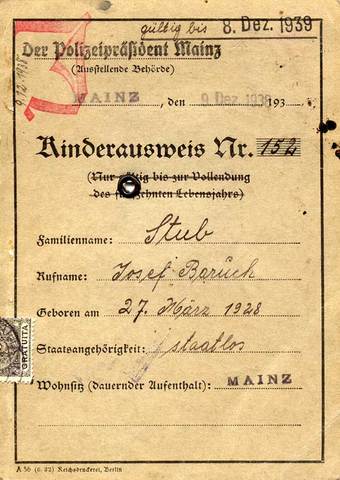 gültig bis 8. Dez. 1939
Der Polizeipräsident Mainz
(Ausstellende Behörde)
J
MAINZ, den 9. Dez. 1938 193
Kinderausweis Nr. 152
(Nur gültig bis zur Vollendung
des fünfzehnten Lebensjahrs)
Familienname: Stub
Rufname: Josef Baruch
Geboren am 27. März 1928
Staatsangehörigkeit: staatlos
Wohnsitz (dauernder Aufenthalt): MAINZ
GRATUITA
A 56 (6. 32) Reichsdruckerei, Berlin